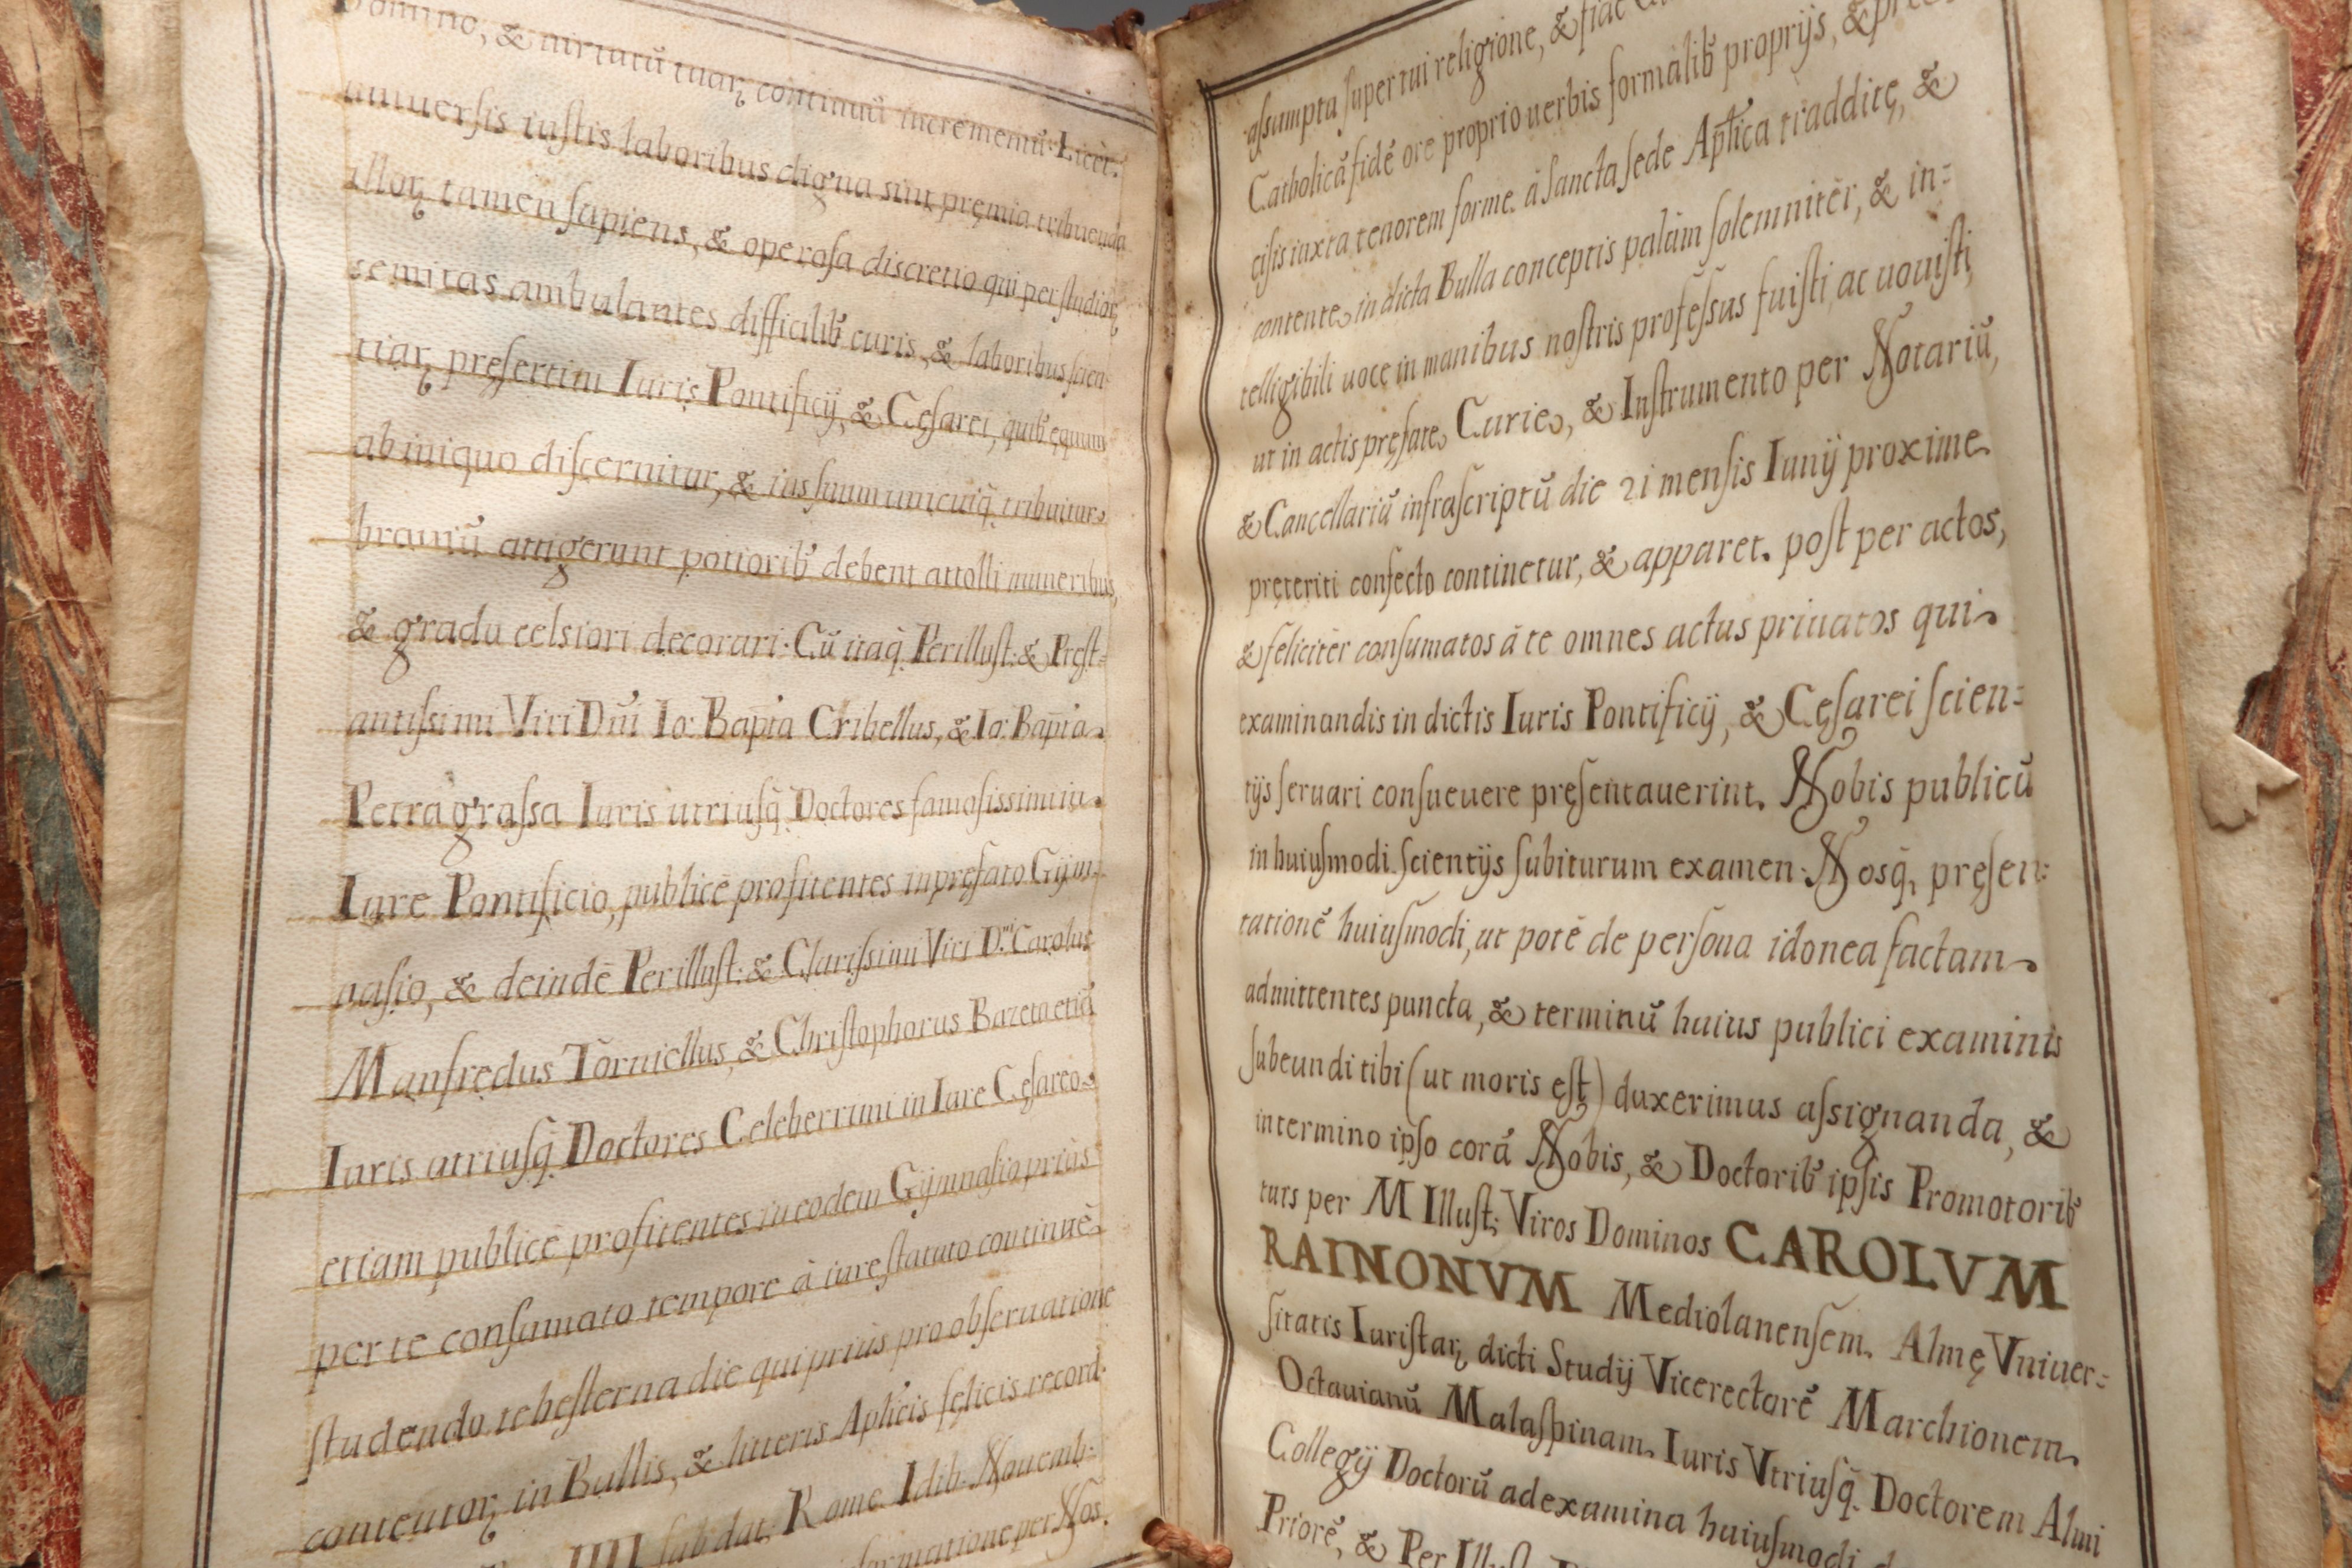 Domino, & uirtutũ tuaꝝ continuũ incrementũ: Licet
uniuersis iustis laboribus digna sint pręmia tribuenda
illoꝝ tamen sapiens, & operosa discretio qui per studioꝝ
semitas ambulantes difficilib᾽ curis, & laboribus scien
tiaꝝ pręsertim Iuris Pontificij, & Cęsarei, quib᾽ ęquum
ab iniquo discernitur, & ius suum unicuiq̃ tribuitur
brauiũ attigerunt potiorib᾽ debent attolli muneribus,
& gradu celsiori decorari: Cũ itaq̃ Perillust: & Pręst=
antissimi Viri Dñi Io: Bapt̃a Cribellus, & Io: Bapt̃a
Petragrassa Iuris utriusq̃ Doctores famosissimi in
Iure Pontificio, publicè profitentes in pręfato Gijm-
nasio, & deindè Perillust: & Clarissimi Viri D.ni Carolus
Manfredus Torniellus, & Christophorus Bazeta etiã
Iuris utriusq̃ Doctores Celeberrimi in Iure Cęsareo
etiam publicè profitentes in eodem Gijmnasio priùs
per te consumato tempore à iure statuto continuè
studendo te hesterna die qui priùs pro obseruatione
contentoꝝ in Bullis, & litteris Aplicis felicis record:
IIII sub dat: Romę Idib. Nouemb:
per Nos.
assumpta super tui religione, & fiac
Catholicã fidẽ ore proprio uerbis formalib᾽ proprijs, &
cisis iuxta tenorem forme à sancta sede Apt̃ica traddite, &
contente in dicta Bulla conceptis palàm solemnitèr, & in=
telligibili uoce in manibus nostris professus fuisti ac uouisti,
ut in actis pręfatę Curię, & Instrumento per Notariũ,
& Cancellariũ infrascriptũ die 21 mensis Iunij proxime
pręteriti confecto continetur, & apparet. post per actos,
& felicitèr consumatos à te omnes actus priuatos qui
examinandis in dictis Iuris Pontificij, & Cęsarei scien=
tijs seruari consueuere pręsentauerint. Nobis publicũ
in huiusmodi scientijs subiturum examen: Nosq̃, pręsen=
tationẽ huiusmodi, ut potè de persona idonea factam
admittentes puncta, & terminũ huius publici examinis
subeundi tibi (ut moris est) duxerimus assignanda, &
in termino ipso corã Nobis, & Doctorib᾽ ipsis Promotorib᾽
tuis per M Illust: Viros Dominos CAROLVM
RAINONVM Mediolanensem. Almę Vniuer=
sitatis Iuristaꝝ dicti Studij Vicerectorẽ Marchionem
Octauianũ Malaspinam Iuris Vtriusq̃ Doctorem Almi
Collegij Doctorũ ad examina huiusmodi
Priorẽ, & Per Illust